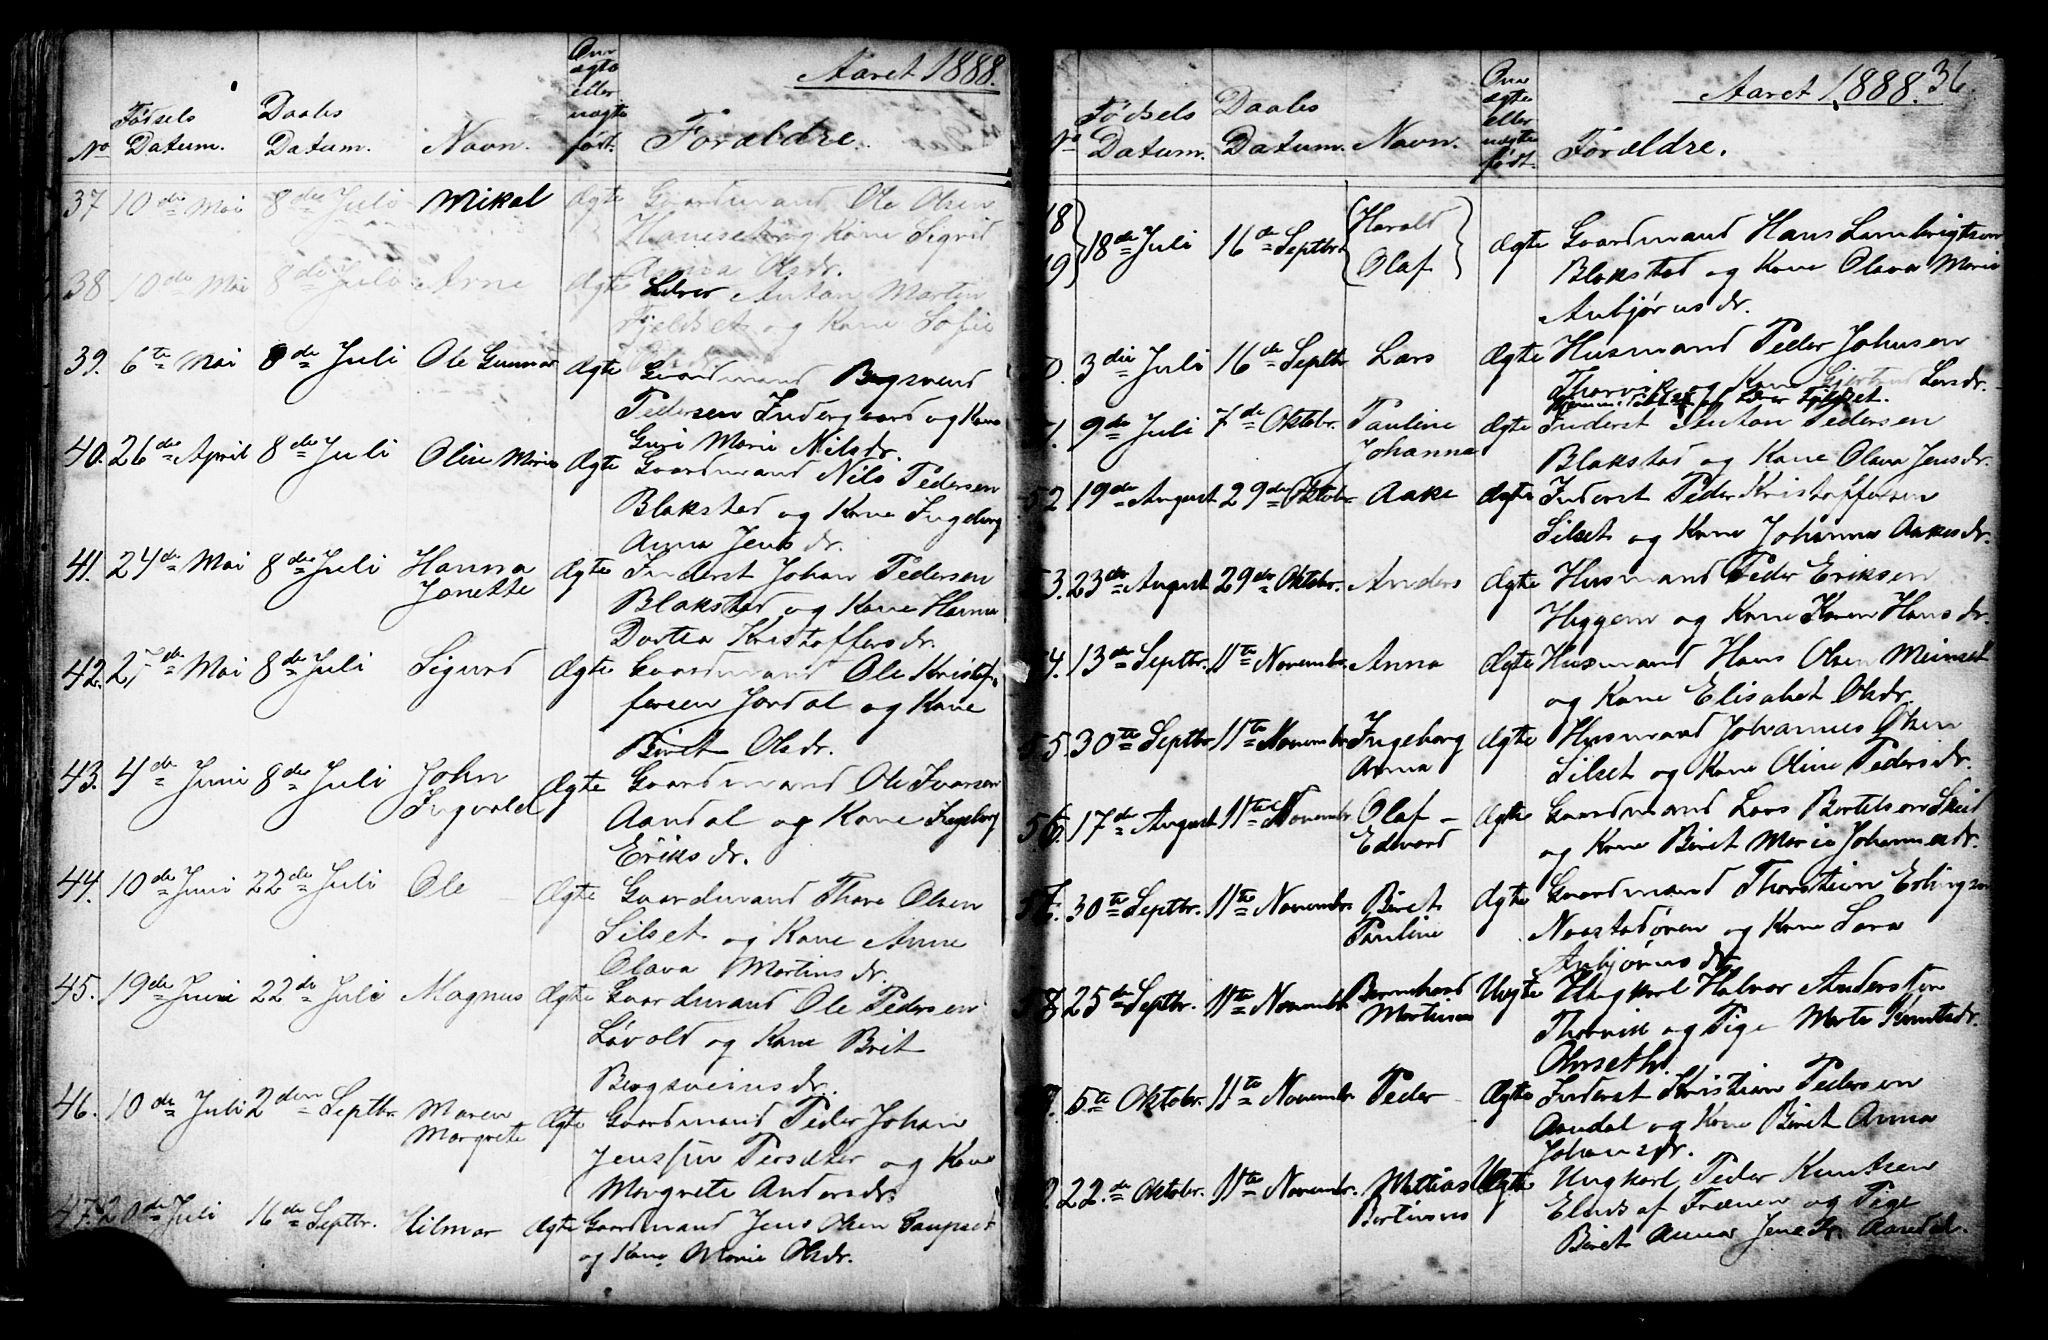 Aaret 1888.
No
Fødsels Datum.
Daabs Datum.
Navn.
Om ægte eller uægte født.
Forældre.
37 10de Mai 8de Juli Mikal Ægte Gaardmand Ole Olsen
Hanset og Kone Sigrid
Anna Olsdr.
38 10de Mai 8de Juli Arne Ægte Lærer Anton Martin
Fjeldset og Kone Sofie
39. 6te Mai 8de Juli Ole Gunnar Ægte Gaardmand Bergsvend
Pedersen Indergaard og Kone
Guri Marie Nilsdr.
40. 26de April 8de Juli Oline Marie Ægte Gaardmand Nils Pedersen
Blakstad og Kone Ingeborg
Anna Jensdr.
41. 24de Mai 8de Juli Hanna Ægte Inderst Johan Pedersen
Janette Blakstad og Kone Hanna
Dortea Kristoffersdr.
42. 27de Mai 8de Juli Sigurd Ægte Gaardmand Ole Kristof-
fersen Jordal og Kone
Beret Olsdr.
43. 4de Juni 8de Juli John Ægte Gaardmand Ole Ivarsen
Ingvald Aandal og Kone Ingeborg
Eriksdr.
44. 10de Juni 22de Juli Ole Ægte Gaardmand Thore Olsen
Silset og Kone Anne
Olava Martinsdr.
45. 19de Juni 22de Juli Magnus Ægte Gaardmand Ole Pedersen
Løvold og Kone Brit
Bergsveinsdr.
46. 10de Juli 2den Septbr. Maren Ægte Gaardmand Peder Johan
Margrete Jenssen Persæter og Kone
Margrete Andersdr.
47. 20de Juli 16de Septbr. Hilmar Ægte Gaardmand Jens Olsen Gaupset
og Kone Marie Olsdr.
Aaret 1888. 36.
No
Fødsels Datum.
Daabs Datum.
Navn.
Om ægte eller uægte født.
Forældre.
18 Harald
19 18de Juli 16de Septbr. Olaf Ægte Gaardmand Hans Lambrigtsen
Blakstad og Kone Olava Marie
Anbjørnsdr.
0. 3die Juli 16de Septbr Lars Ægte Husmand Peder Johnsen
Thorvik og Kone Gjertrud Larsdr.
af Lærer Fjeldset.
1. 9de Juli 7de Oktobr. Pauline Ægte Inderst Anton Pedersen
Johanna Blakstad og Kone Olava Jensdr.
52 19de August 29de Oktobr Aake Ægte Inderst Peder Kristoffersen
Silset og Kone Johanna Aakesdr.
3. 23de August 29de Oktobr. Anders Ægte Husmand Peder Eriksen
Heggem og Kone Karen Hansdr.
4. 13de Septbr. 11te Novembr. Anna Ægte Husmand Hans Olsen Meinset
og Kone Elisabet Olsdr.
55. 30te Septbr 11te Novembr Ingeborg Ægte Husmand Johannes Olsen
Anna Silset og Kone Oline Pedersdr.
56. 17de August 11te Novembr. Olaf - Ægte Gaardmand Lars Bertelsen Skeid
Edvard og Kone Beret Marie Johannesdr.
57. 30te Septbr. 11te Novembr. Beret Ægte Gaardmand Thorstein Erlingsen
Pauline Naastadøren og Kone Sara
Anbjørnsdr.
58 25de Septbr. 11te Novembr Bernhard Uægte Ungkarl Halvor Andersen
Martinus Thorvik og Pige Marte Knutsdr.
Ohrseth.
9. 5te Oktobr. 11te Novembr. Peder Ægte Inderst Kristian Pedersen
Aandal og Kone Beret Anna
Johansdr.
0. 22de Oktobr. 11te Novembr. Mathias Uægte Ungkarl Peder Knutsen
Bertinus Elnes af Frænen og Pige
Beret Anna Jensdr. Aandal.